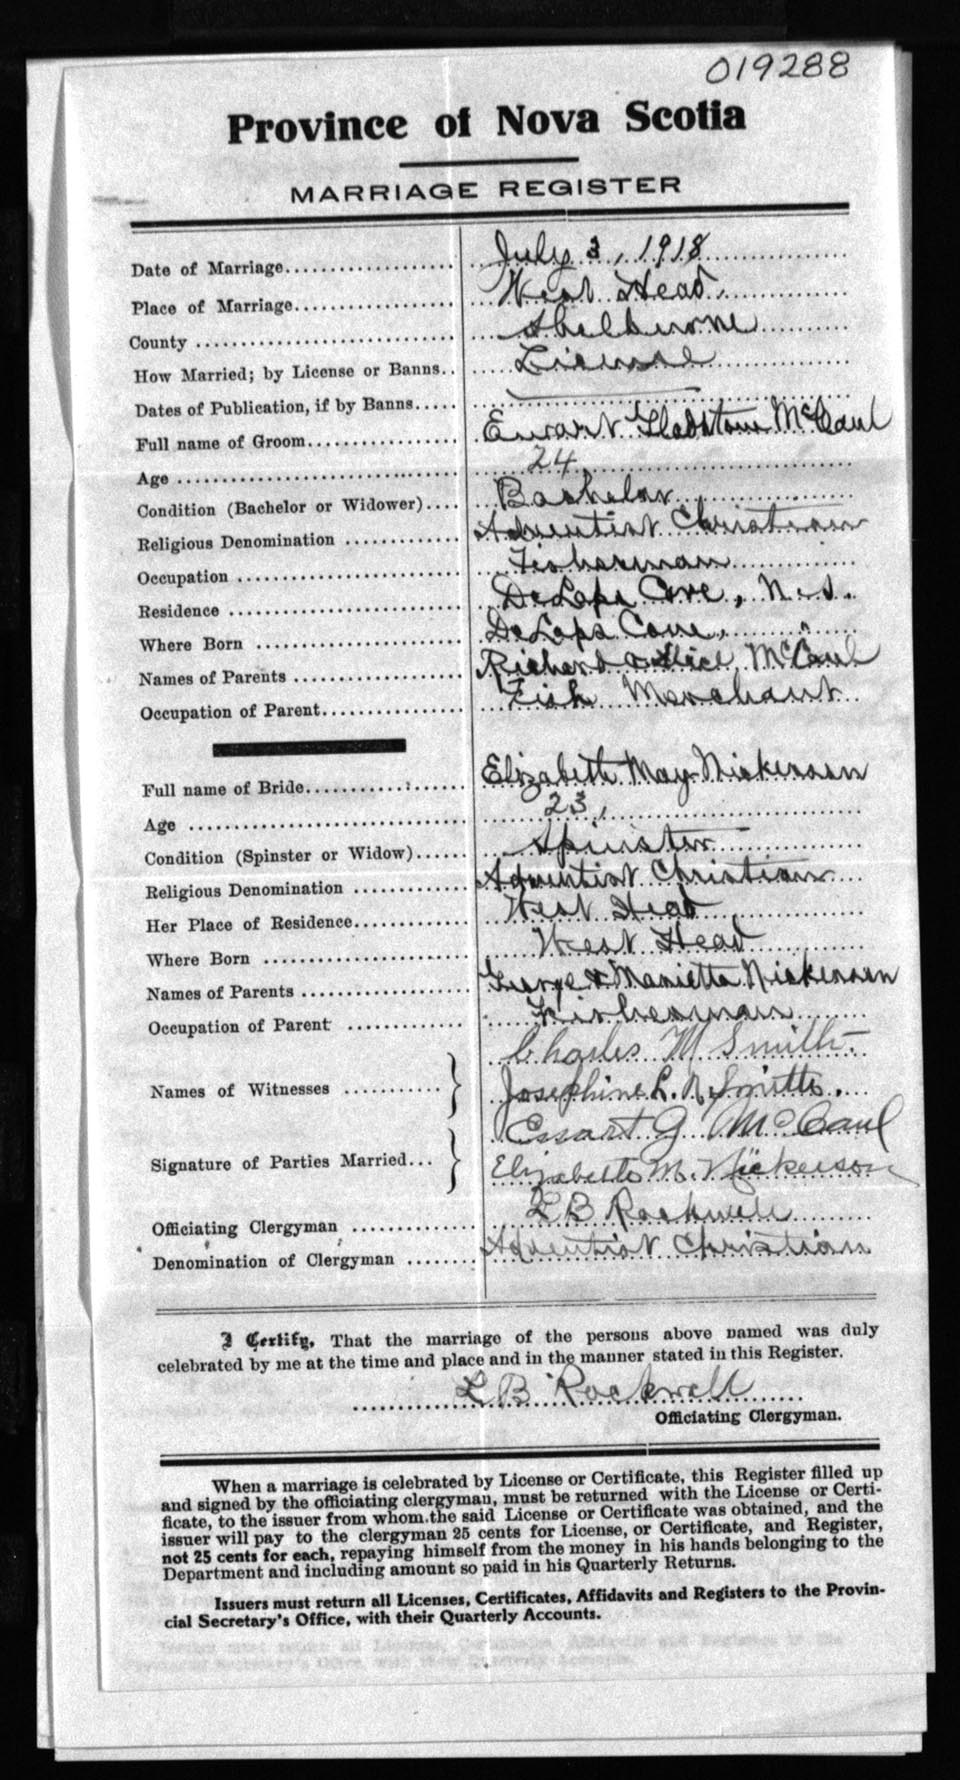 019288
Province of Nova Scotia
MARRIAGE REGISTER
Date of Marriage July 3, 1918
Place of Marriage West Head,
County Shelburne
How Married; by License or Banns License
Dates of Publication, if by Banns
Full name of Groom Ewart Gladstone McCaul
Age 24
Condition (Bachelor or Widower) Bachelor
Religious Denomination Adventist Christian
Occupation Fisherman
Residence DeLaps Cove, N.S.
Where Born DeLaps Cove, "
Names of Parents Richard & Alice McCaul
Occupation of Parent Fish Merchant
Full name of Bride Elizabeth May Nickerson
Age 23,
Condition (Spinster or Widow) Spinster
Religious Denomination Adventist Christian
Her Place of Residence West Head
Where Born West Head
Names of Parents George & Marietta Nickerson
Occupation of Parent Fisherman
Names of Witnesses } Charles M Smith.
Josephine L. N. Smith.
Signature of Parties Married } G McCaul
Elizabeth M. Nickerson
Officiating Clergyman L B Rockwell
Denomination of Clergyman Adventist Christian
I Certify, That the marriage of the persons above named was duly
celebrated by me at the time and place and in the manner stated in this Register.
L B Rockwell
Officiating Clergyman.
When a marriage is celebrated by License or Certificate, this Register filled up
and signed by the officiating clergyman, must be returned with the License or Certi-
ficate, to the issuer from whom the said License or Certificate was obtained, and the
issuer will pay to the clergyman 25 cents for License, or Certificate, and Register,
not 25 cents for each, repaying himself from the money in his hands belonging to the
Department and including amount so paid in his Quarterly Returns.
Issuers must return all Licenses, Certificates, Affidavits and Registers to the Provin-
cial Secretary's Office, with their Quarterly Accounts.